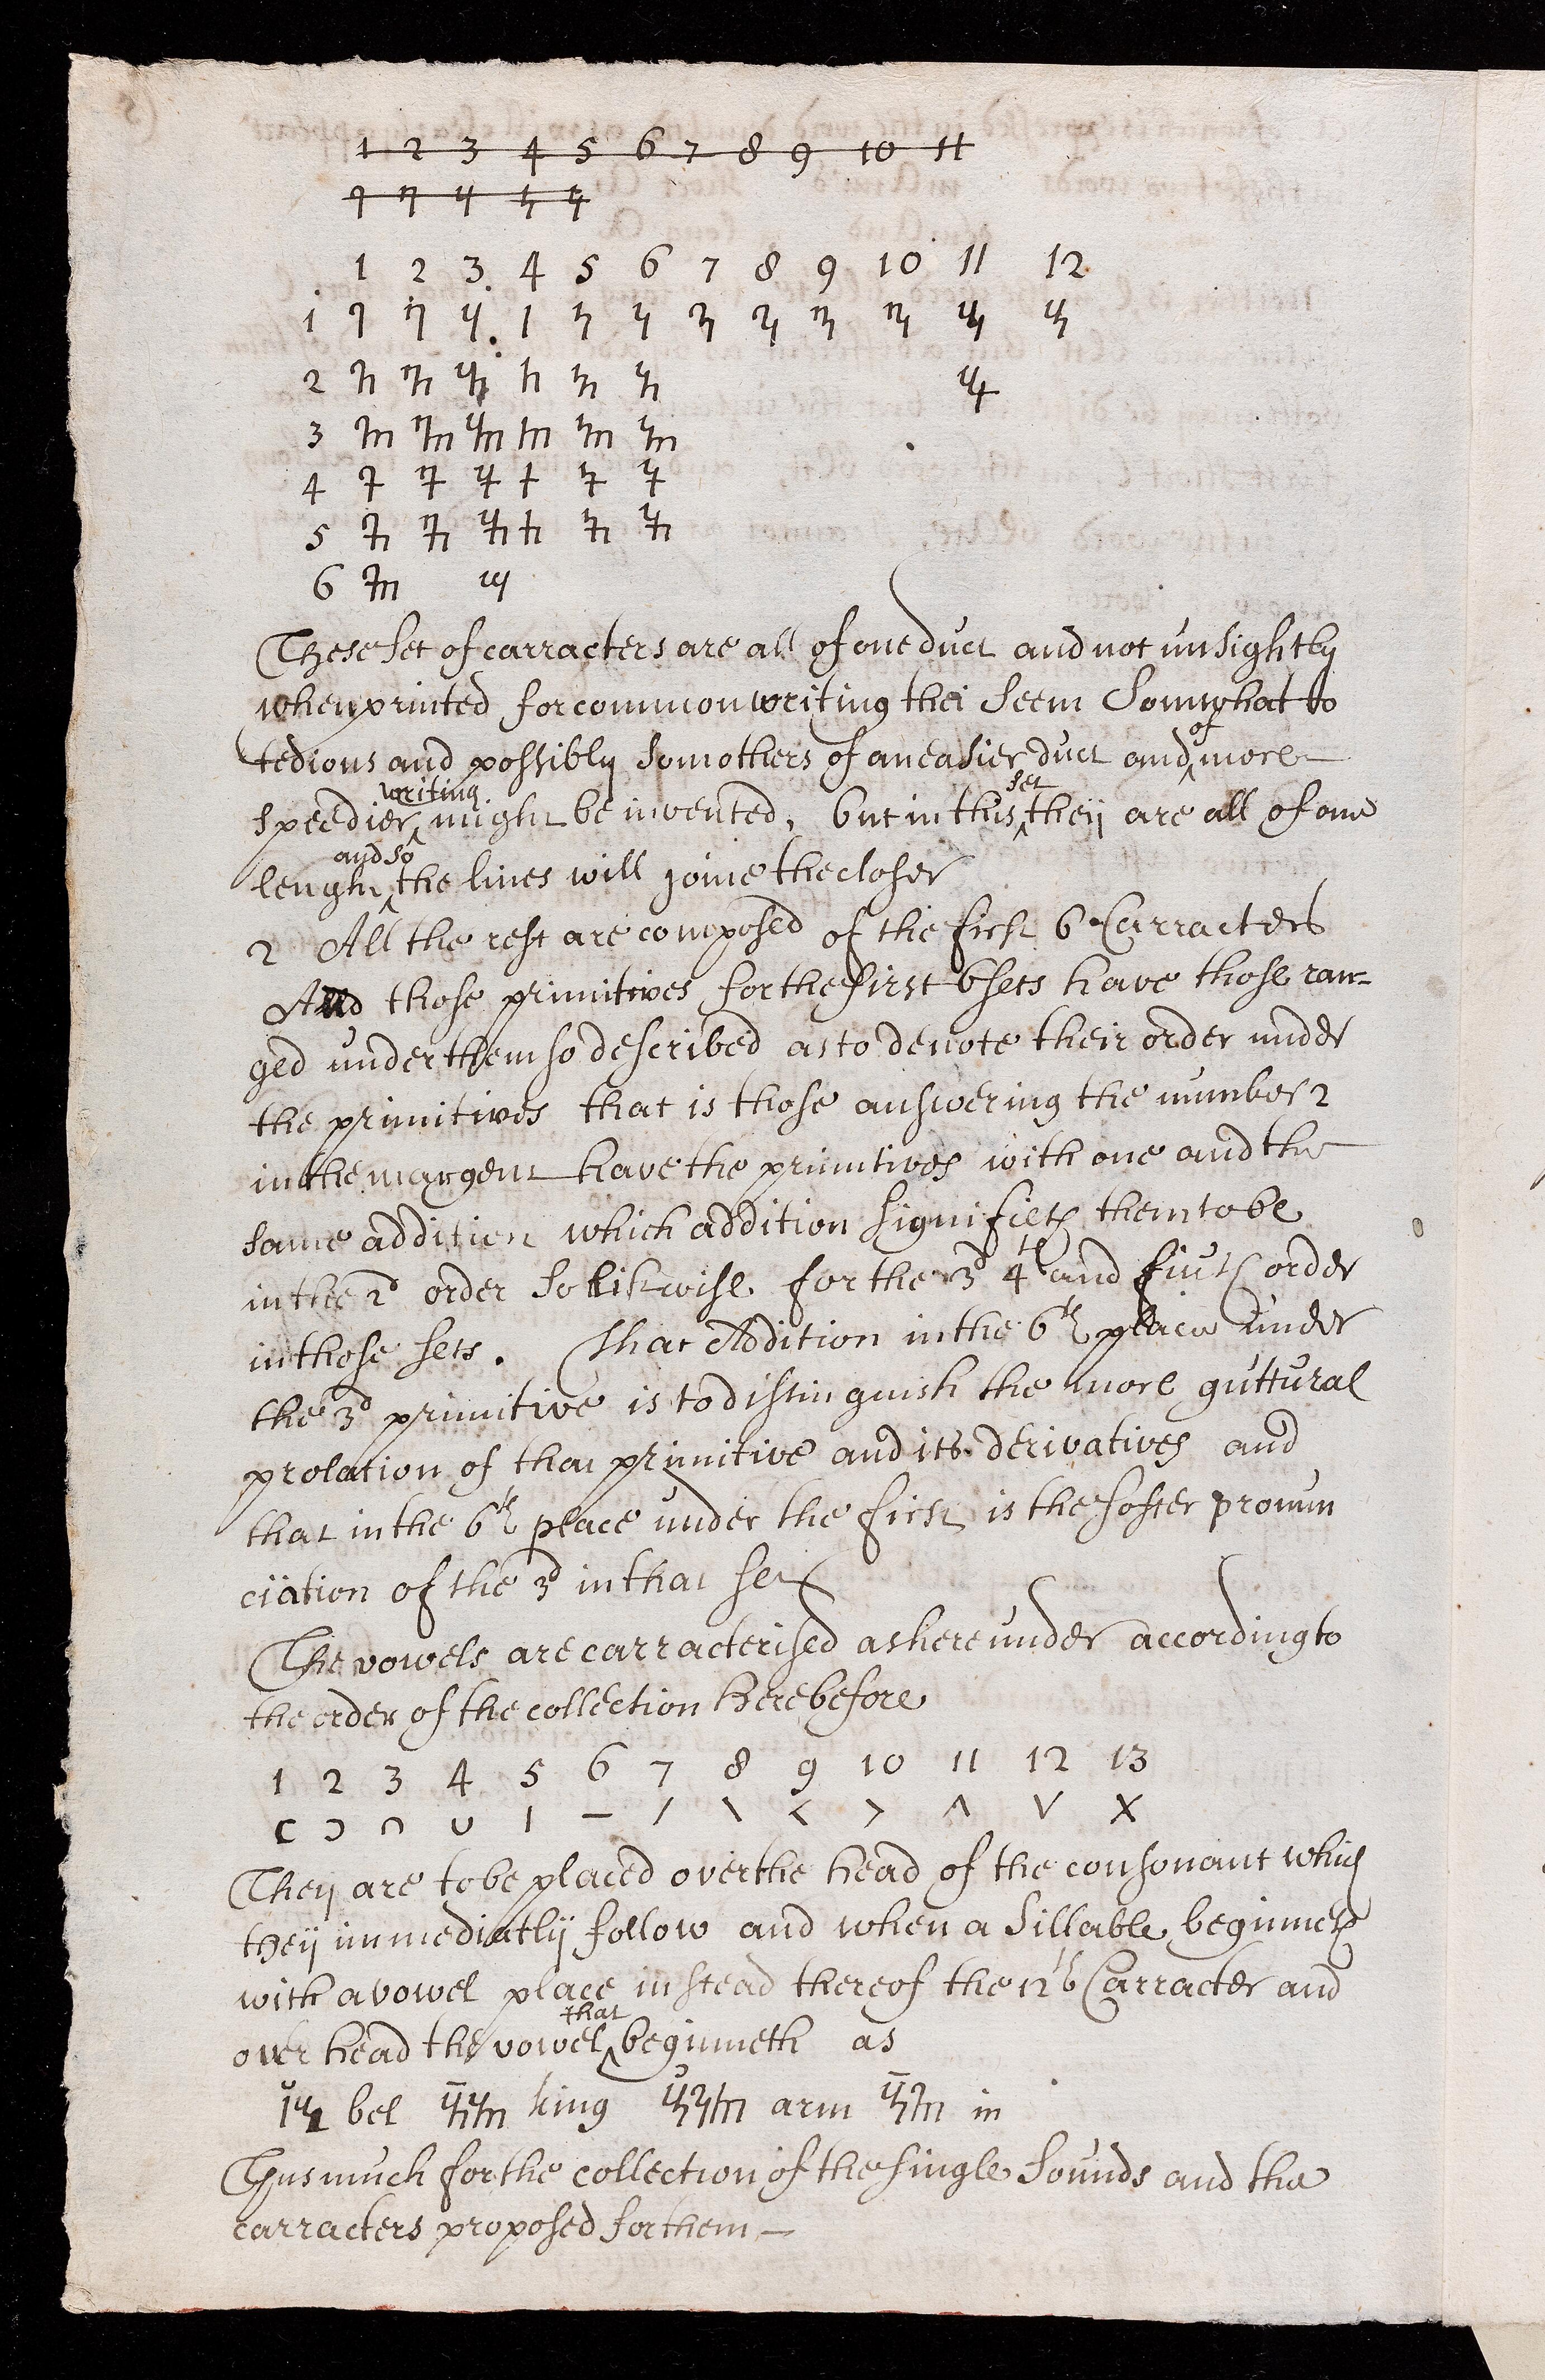 1 2 3 4 5 6 7 8 9 10 11
1 2 3 4 5 6 7 8 9 10 11 12
1
2
3
4
5
6
These set of carracters are all of one duct and not unsightly
when printed for common writing thei seem Somwhat to
tedious and possibly som others of an easier duct and of more
speedier writing might be invented, but in this set they are all of one
lengh and so the lines will joine the closer
2 All the rest are composed of the first 6 Carracters
And those primitives for the first 6 sets have those ran-
ged under them so described as to denote their order under
the primitives that is those answering the number 2
in the margent have the primitives with one and the
same addition which addition signifieth them to be
in the 2d order So likwise for the 3d 4th and fiuth order
in those sets. That Addition in the 6th place under
the 3d primitive is to distinguish the more guttural
prolation of that primitive and its derivatives and
that in the 6th place under the first is the softer pronun
ciation of the 3d in that set
The vowels are carracterised as here under according to
the order of the collection herebefore
1 2 3 4 5 6 7 8 9 10 11 12 13
c ɔ ∩ ∪ ı — / \ < > ʌ v x
They are to be placed over the head of the consonant which
they immediatly follow and when a Sillable beginneth
with a vowel place in stead thereof the 12th Carracter and
over head the vowel that beginneth as
bel king arm in
Thus much for the collection of the single Sounds and the
carracters proposed for them —